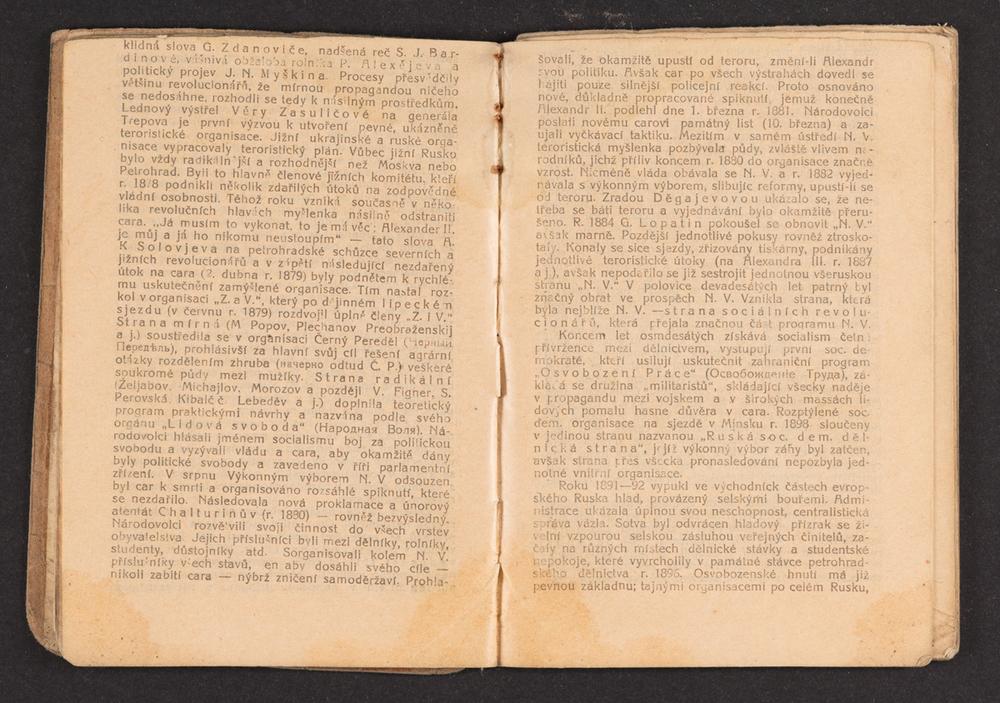 klidná slova G. Zdanoviče, nadšená reč S. J. Bar-
dinové, vášnivá obžaloba rolníka P. Alexějeva a
politický projev J. N. Myškina. Procesy přesvědčily
většinu revolucionářů, že mírnou propagandou ničeho
se nedosáhne, rozhodli se tedy k násilným prostředkům.
Lednový výstřel Věry Zasuličové na generála
Trepova je první výzvou k utvoření pevné, ukázněné
teroristické organisace. Jižní ukrajinské a ruské orga-
nisace vypracovaly teroristický plán. Vůbec jižní Rusko
bylo vždy radikálnější a rozhodnější než Moskva nebo
Petrohrad. Byli to hlavně členové jižních komitétu, kteří
r. 1878 podnikli několik zdařilých útoků na zodpovědné
vládní osobnosti. Téhož roku vzniká současně v něko-
lika revolučních hlavách myšlenka násilně odstraniti
cara. „Já musím to vykonat, to je má věc; Alexander II.
je můj a já ho nikomu neustoupím“ — tato slova A.
K Solovjeva na petrohradské schůzce severních a
jižních revolucionářů a v zápětí následující nezdařený
útok na cara (2. dubna r. 1879) byly podnětem k rychlé-
mu uskutečnění zamýšlené organisace. Tím nastal roz-
kol v organisaci „Z. a V.“, který po dějinném lipeckém
sjezdu (v červnu r. 1879) rozdvojil úplně členy „Z. i V.“
Strana mírná (M Popov, Plechanov Preobraženskij
a j.) soustředila se v organisaci Černý Pereděl (Черный
Передѣлъ), prohlásivší za hlavní svůj cíl řešení agrární
otázky rozdělením zhruba (начерно odtud Č. P.) veškeré
soukromé půdy mezi mužíky. Strana radikální
(Željabov, Michajlov, Morozov a později V. Figner, S.
Perovská, Kibalčč Lebeděv a j.) doplnila teoretický
program praktickými návrhy a nazvána podle svého
orgánu „Lidová svoboda“ (Народная Воля). Ná-
rodovolci hlásali jménem socialismu boj za politickou
svobodu a vyzývali vládu a cara, aby okamžitě dány
byly politické svobody a zavedeno v říši parlamentní
zřízení. V srpnu Výkonným výborem N. V odsouzen
byl car k smrti a organisováno rozsáhlé spiknutí, které
se nezdařilo. Následovala nová proklamace a únorový
atentát Chalturinův (r. 1890) — rovněž bezvýsledný.
Národovolci rozvětvili svoji činnost do všech vrstev
obyvatelstva Jejich příslušníci byli mezi dělníky, rolníky,
studenty, důstojníky atd. Sorganisovali kolem N. V.
příslušníky všech stavů, en aby dosáhli svého cíle —
nikoli zabití cara — nýbrž zničení samoděržaví. Prohla-
šovali, že okamžitě upustí od teroru, změní-li Alexandr
svou politiku. Avšak car po všech výstrahách dovedl se
hájiti pouze silnější policejní reakcí. Proto osnováno
nové, důkladně propracované spiknutí, jemuž konečně
Alexandr II. podlehl dne 1. března r. 1881. Národovolci
poslali novému carovi památný list (10. března) a za-
ujali vyčkávací taktiku. Mezitím v samém ústředí N. V.
teroristická myšlenka pozbývala půdy, zvláště vlivem na-
rodníků, jichž příliv koncem r. 1880 do organisace značně
vzrost. Nicméně vláda obávala se N. V. a r. 1882 vyjed-
návala s výkonným výborem, slibujíc reformy, upustí-li se
od teroru. Zradou Děgajevovou ukázalo se, že ne-
třeba se báti teroru a vyjednávání bylo okamžitě přeru-
šeno. R. 1884 G. Lopatin pokoušel se obnovit „N. V.“
avšak marně. Pozdější jednotlivé pokusy rovněž ztrosko-
taly. Konaly se sice sjezdy, zřizovány tiskárny, podnikány
jednotlivé teroristické útoky (na Alexandra III. r. 1887
a j.), avšak nepodařilo se již sestrojit jednotnou všeruskou
stranu „N. V.“ V polovice devadesátých let patrný byl
značný obrat ve prospěch N. V. Vznikla strana, která
byla nejblíže N. V. —strana sociálních revolu-
cionářů, která přejala značnou část programu N. V.
Koncem let osmdesátých získává socialism četné
přívržence mezi dělnictvem, vystupují první soc. de-
mokraté, kteří usilují uskutečnit zahraniční program
„Osvobození Práce“ (Освобожденіе Труда), za-
kládá se družina „militaristů“, skládající všecky naděje
v propagandu mezi vojskem a v širokých massách li-
dových pomalu hasne důvěra v cara. Rozptýlené soc.
dem. organisace na sjezdě v Minsku r. 1898 sloučeny
v jedinou stranu nazvanou „Ruská soc. dem. děl-
nická strana“, jejíž výkonný výbor záhy byl zatčen,
avšak strana přes všecka pronasledování nepozbyla jed-
notné vnitřní organisace.
Roku 1891—92 vypukl ve východních částech evrop-
ského Ruska hlad, provázený selskými bouřemi. Admi-
nistrace ukázala úplnou svou neschopnost, centralistická
správa vázla. Sotva byl odvrácen hladový přízrak se ži-
velní vzpourou selskou zásluhou veřejných činitelů, za-
čaly na různých místech dělnické stávky a studentské
nepokoje, které vyvrcholily v památné stávce petrohrad-
ského dělnictva r. 1896. Osvobozenské hnutí má již
pevnou základnu; tajnými organisacemi po celém Rusku,